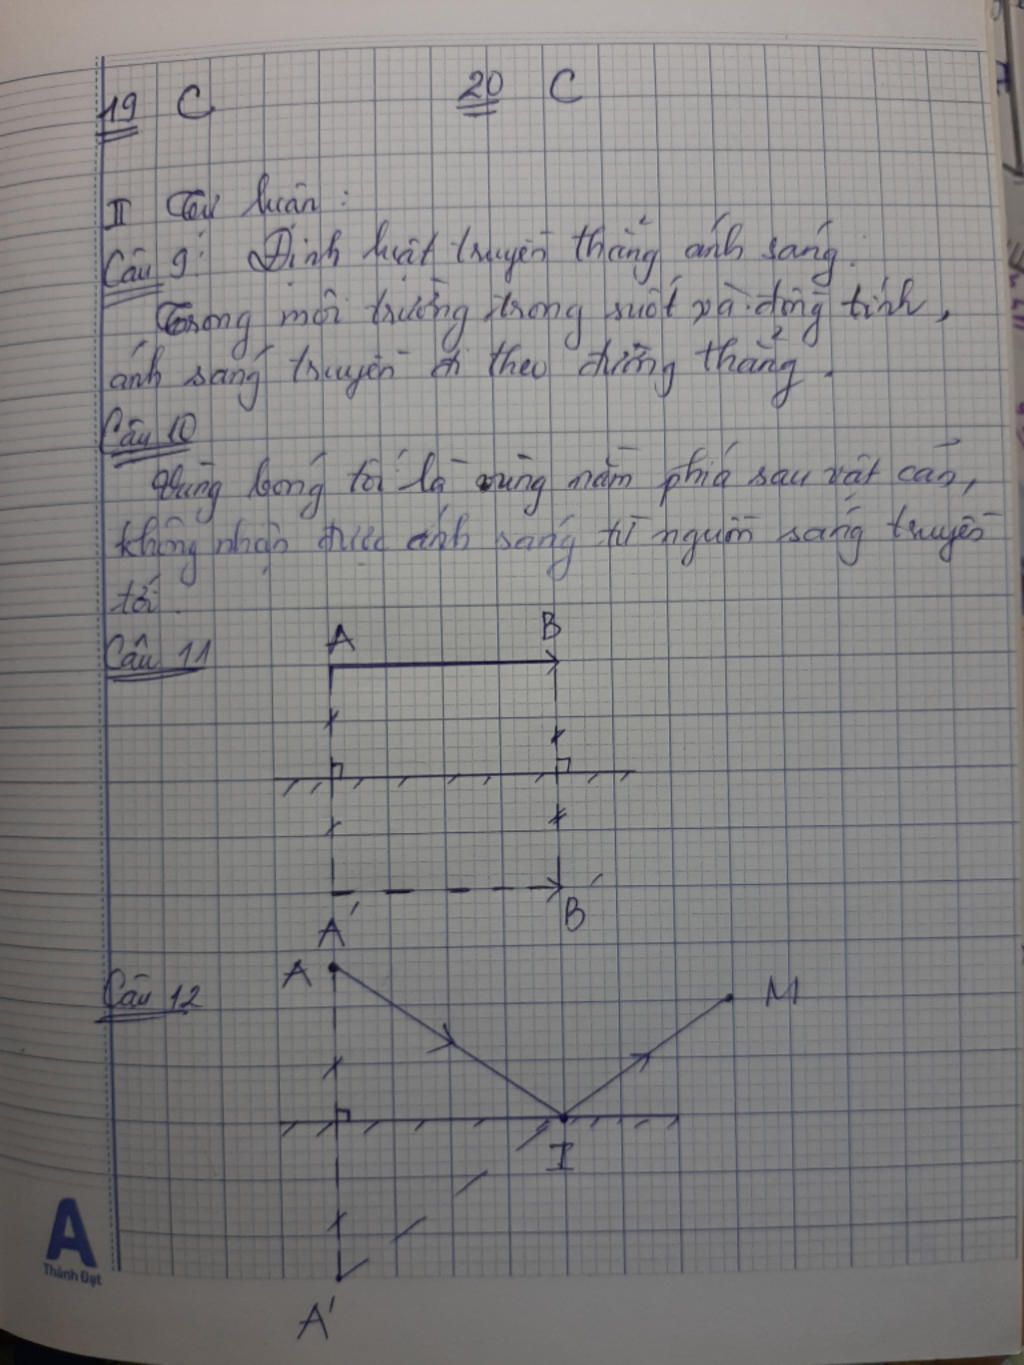 19 C 20 C
II Tự luận:
Câu 9: Định luật truyền thẳng ánh sáng:
Trong môi trường trong suốt và đồng tính,
ánh sáng truyền đi theo đường thẳng.
Câu 10
Vùng bóng tối là vùng nằm phía sau vật cản,
không nhận được ánh sáng từ nguồn sáng truyền
tới.
Câu 11
A B
A' B'
Câu 12
A M
I
A'
A
Thành Đạt